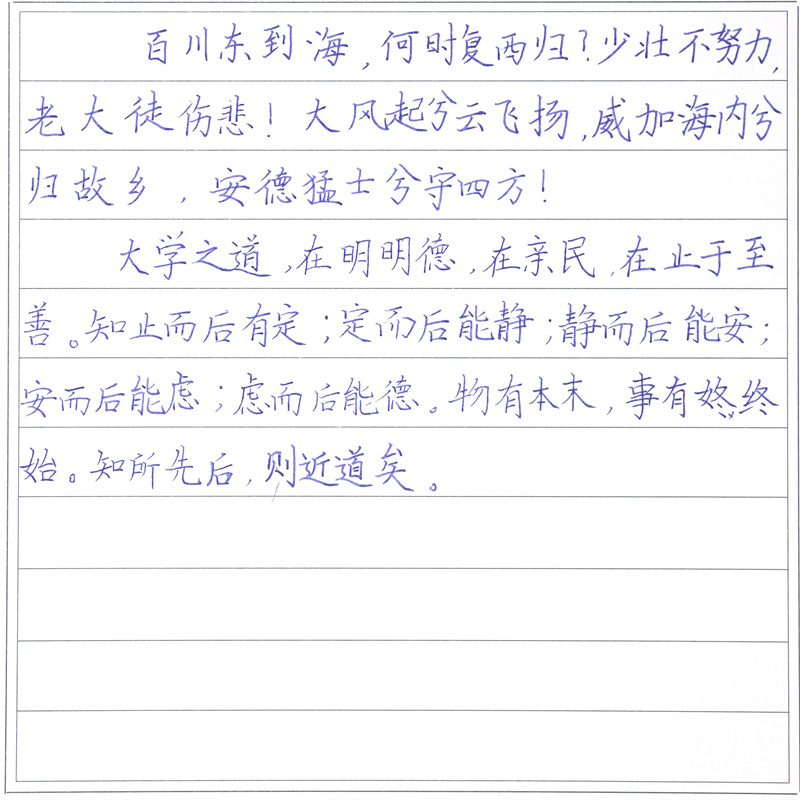 百川东到海,何时复西归?少壮不努力,
老大徒伤悲!大风起兮云飞扬,威加海内兮
归故乡,安德猛士兮守四方!
大学之道,在明明德,在亲民,在止于至
善。知止而后有定;定而后能静;静而后能安;
安而后能虑;虑而后能德。物有本末,事有终
始。知所先后,则近道矣。